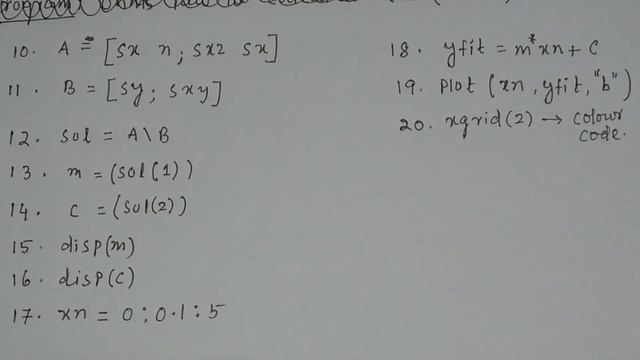 Program
10. A = [sx n ; sx2 sx]
11. B = [sy ; sxy]
12. sol = A\B
13. m = (sol(1))
14. c = (sol(2))
15. disp(m)
16. disp(c)
17. xn = 0:0.1:5
18. yfit = m*xn + c
19. plot (xn, yfit, "b")
20. xgrid(2) → colour code.